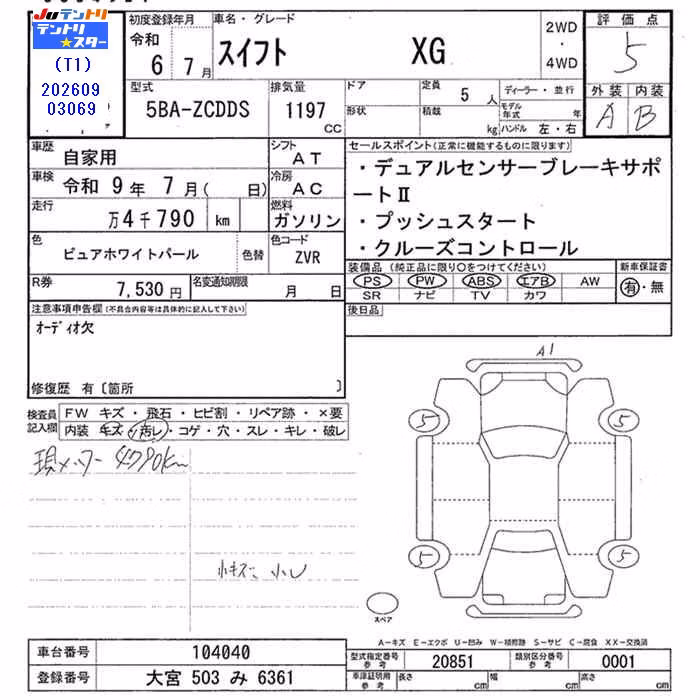 Juテントリ
テントリ★スター
(T1)
202609
03069
初度登録年月
令和
6年 7月
車名・グレード
スイフト XG
2WD
・
4WD
評価点
5
外装 内装
A B
型式
5BA-ZCDDS
排気量
1197
CC
ドア
形状
定員
5人
積載
kg
ディーラー・並行
モデル
年式 年
ハンドル 左・右
車歴 自家用
シフト
AT
車検 令和 9年 7月( 日)
冷房
AC
走行 万4千790 km
燃料
ガソリン
色 ピュアホワイトパール 色替
色コード
ZVR
R券 7,530円
名変通知期限 月 日
セールスポイント(正常に機能するものに限ります)
・デュアルセンサーブレーキサポ
ートⅡ
・プッシュスタート
・クルーズコントロール
装備品(純正品に限り○をつけてください)
PS PW ABS エアB AW
SR ナビ TV カワ
新車保証書
有・無
後日品
注意事項申告欄(不具合内容等は具体的に記入して下さい)
オーディオ欠
修復歴 有〔箇所 〕
検査員
記入欄
FW キズ・飛石・ヒビ割・リペア跡・×要
内装 キズ・汚レ・コゲ・穴・スレ・キレ・破レ
現メーター 4790km
小キズ 小凹
A1
5 5
5 5
スペア
A-キズ E-エクボ U-凹み W-補修跡 S-サビ C-腐食 XX-交換済
車台番号 104040
登録番号 大宮 503 み 6361
型式指定番号
参考
20851
類別区分番号
参考
0001
車庫証明用
参考
長さ cm 幅 cm 高さ cm